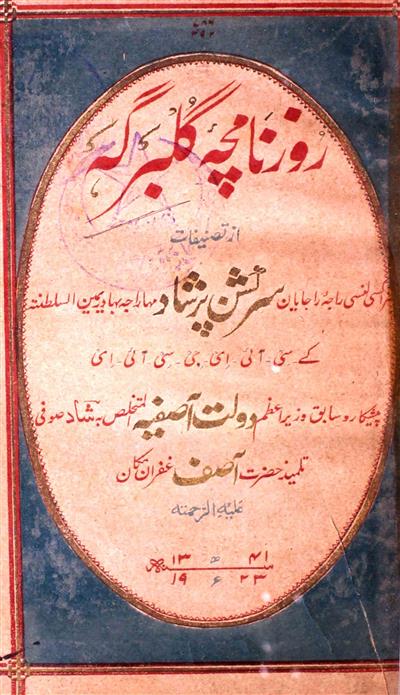 ۷۸۶
روزنامچۂ گلبرگہ
از تصنیفات
ہز اکسی لنسی راجۂ راجایان سر کشن پرشاد مہاراجہ بہادر یمین السلطنتہ
کے ۔ سی ۔ آئی ۔ ای ۔ جی ۔ سی ۔ آئی ۔ ای
پیشکار و سابق وزیر اعظم دولت آصفیہ المتخلص بہ شاد صوفی
تلمیذ حضرت آصف غفران مکان
علیہ الرحمتہ
۱۳۴۱ھ
۱۹۲۳ء